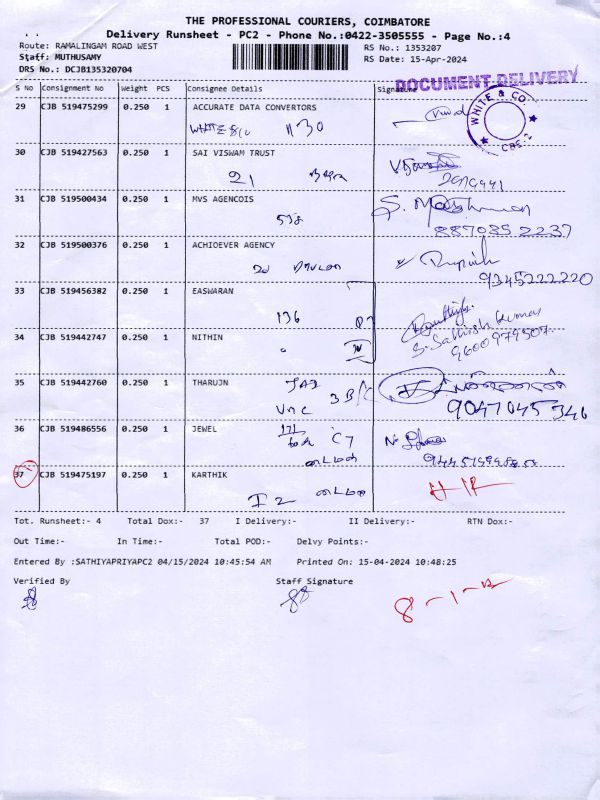 THE PROFESSIONAL COURIERS, COIMBATORE
Delivery Runsheet - PC2 - Phone No.:0422-3505555 - Page No.:4
Route: RAMALINGAM ROAD WEST
RS No.: 1353207
Staff: MUTHUSAMY
RS Date: 15-Apr-2024
DRS No.: DCJB135320704
DOCUMENT DELIVERY
S No Consignment No Weight PCS Consignee Details Signature
WHITE & CO.
CBE-2
29 CJB 519475299 0.250 1 ACCURATE DATA CONVERTORS
1130
30 CJB 519427563 0.250 1 SAI VISWAM TRUST
21
31 CJB 519500434 0.250 1 MVS AGENCOIS
538
887085 2237
32 CJB 519500376 0.250 1 ACHIOEVER AGENCY
9345222220
33 CJB 519456382 0.250 1 EASWARAN
136
34 CJB 519442747 0.250 1 NITHIN
S. Sathish Kumar
9600979507
35 CJB 519442760 0.250 1 THARUJN
3 B/C
9047045346
36 CJB 519486556 0.250 1 JEWEL
171
C7
37 CJB 519475197 0.250 1 KARTHIK
I 2
Tot. Runsheet:- 4 Total Dox:- 37 I Delivery:- II Delivery:- RTN Dox:-
Out Time:- In Time:- Total POD:- Delvy Points:-
Entered By :SATHIYAPRIYAPC2 04/15/2024 10:45:54 AM Printed On: 15-04-2024 10:48:25
Verified By Staff Signature